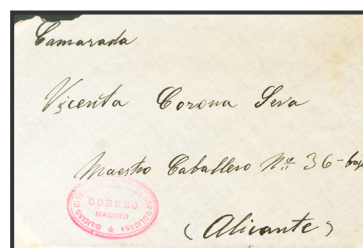 Camarada
Vicenta Corona Seva
Maestro Caballero Nº 36-bajo
CORREO
MADRID
(Alicante)